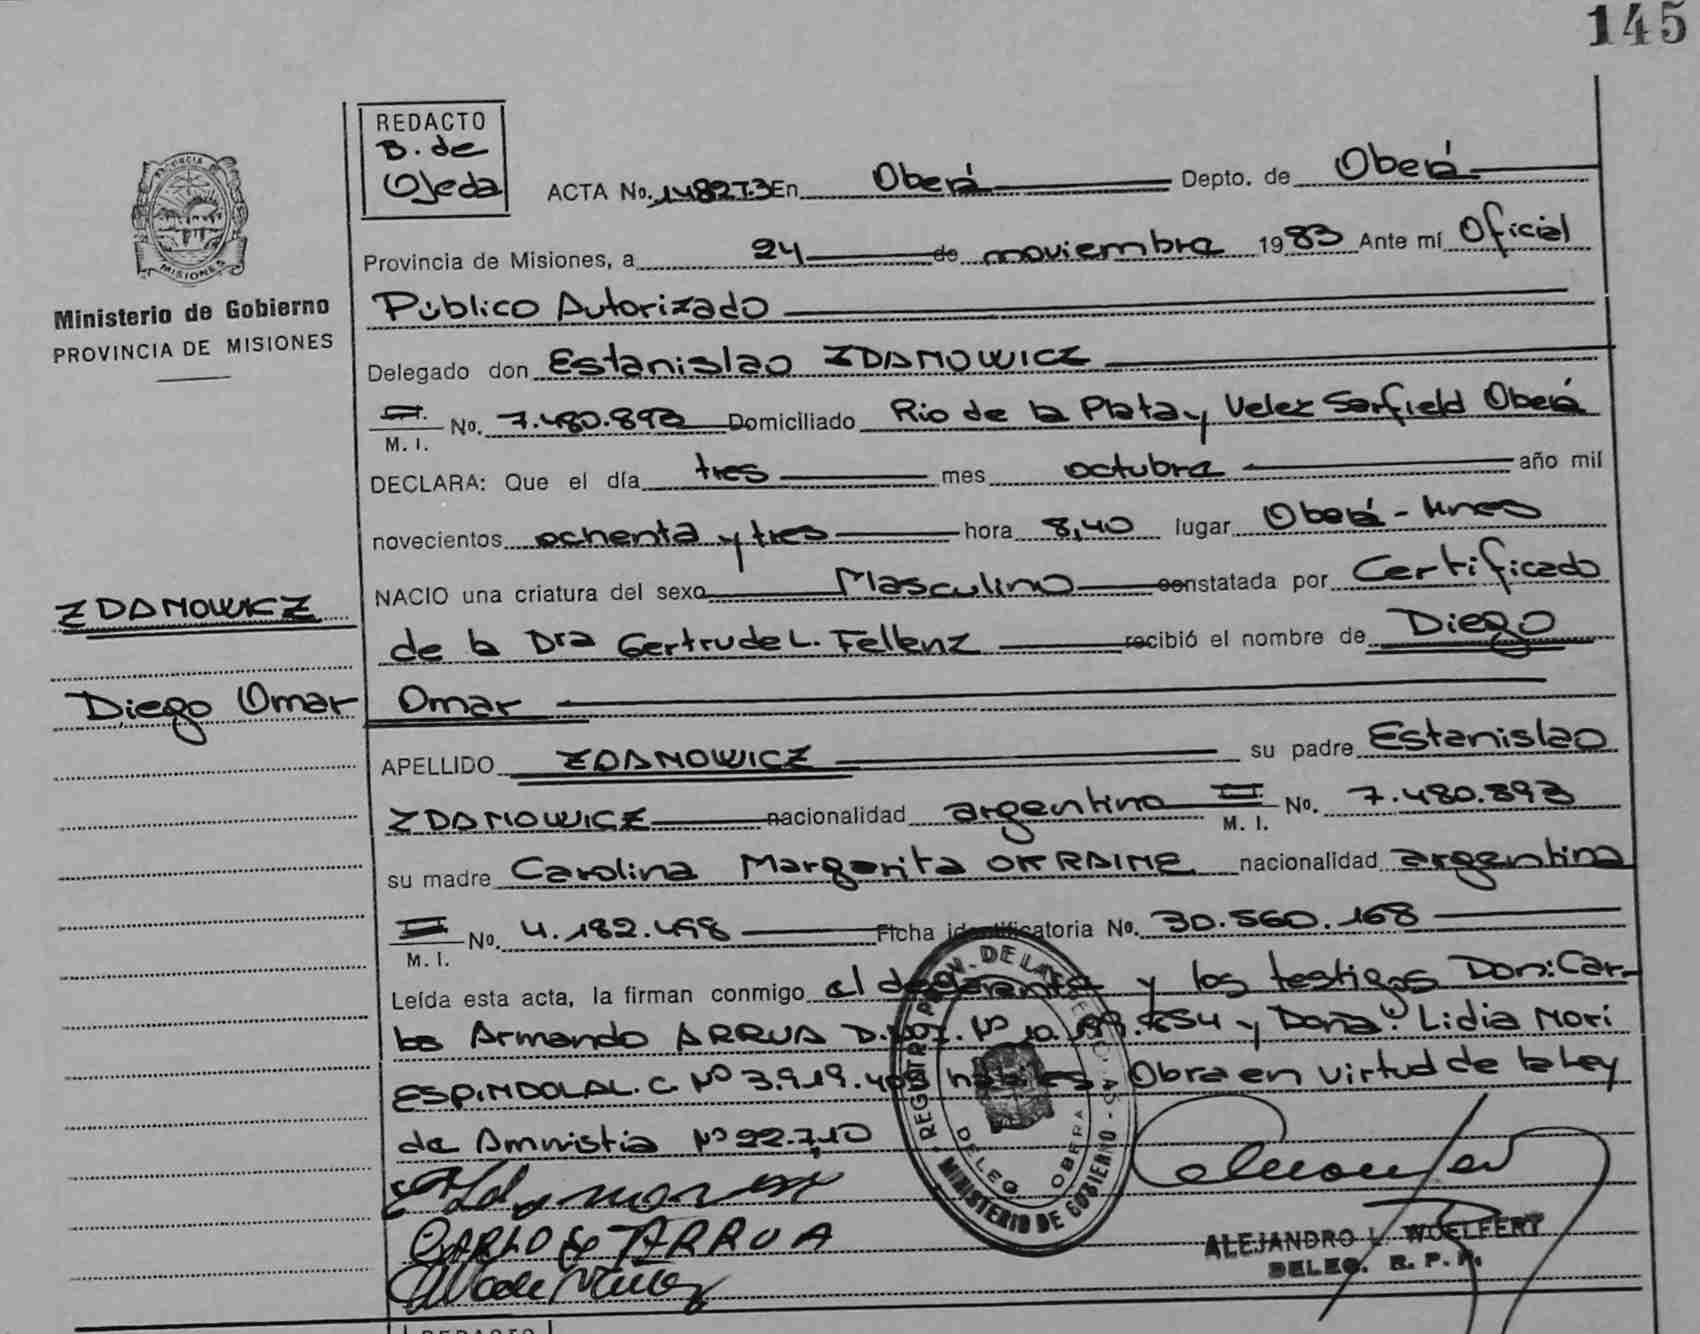 145
REDACTO
B. de
Ojeda
ACTA No. 1482T.3 En Oberá Depto. de Oberá
PROVINCIA
MISIONES
Ministerio de Gobierno
PROVINCIA DE MISIONES
Provincia de Misiones, a 24 de noviembre 1983 Ante mí Oficial
Público Autorizado
Delegado don Estanislao ZDANOWICZ
M. I. No. 7.480.893 Domiciliado Rio de la Plata y Velez Sarfield Oberá
DECLARA: Que el día tres mes octubre año mil
novecientos ochenta y tres hora 8,40 lugar Oberá -
NACIO una criatura del sexo Masculino constatada por Certificado
ZDANOWICZ
de la Dra Gertrude L. Fellenz recibió el nombre de Diego
Diego Omar
Omar
APELLIDO ZDANOWICZ su padre Estanislao
ZDANOWICZ nacionalidad argentino M. I. No. 7.480.893
su madre Carolina Margarita OKRAINE nacionalidad argentina
M. I. No. 4.182.498 Ficha identificatoria No. 30.560.168
Leída esta acta, la firman conmigo el declarante y los testigos Don: Car-
los Armando ARRUA D.N.I. Nº 10. .554 y Doña: Lidia Nori
ESPINDOLA L.C. Nº 3.919. hábiles Obra en virtud de la Ley
de Amnistia Nº 22.710
REGISTRO PROV. DE LAS PERSONAS - MINISTERIO DE GOBIERNO
DELEG. OBERA
CARLOS ARRUA
ALEJANDRO L. WOELFERT
DELEG. R. P. P.
REDACTO